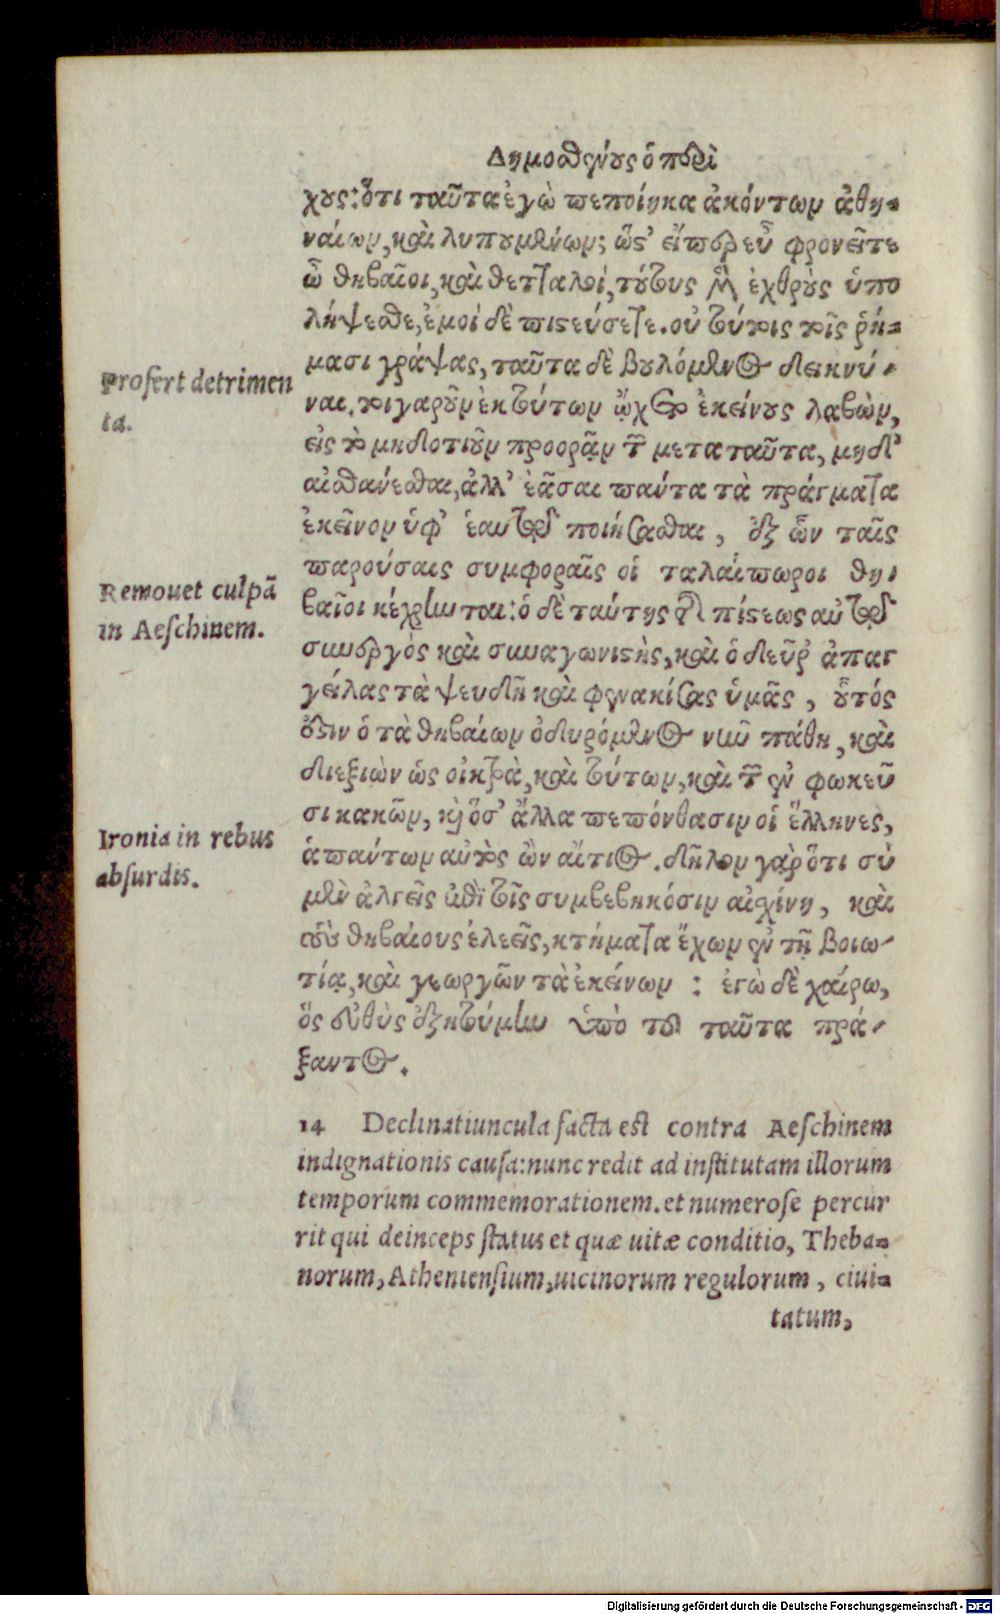 Δημοσθένους ὁ περὶ
χους: ὅτι ταῦτα ἐγὼ πεποίηκα ἀκόντων ἀθη-
ναίων, καὶ λυπουμένων; ὥς' εἴπερ εὖ φρονεῖτε
ὦ θηβαῖοι, καὶ θετταλοί, τούτους μὲν ἐχθροὺς ὑπο
λήψεσθε, ἐμοὶ δὲ πιστεύσετε. οὐ τούτοις τοῖς ῥή-
Profert detrimen
ta.
μασι γράψας, ταῦτα δὲ βουλόμενος δεικνύ-
ναι. τοιγαροῦν ἐκ τούτων ᾤχετο ἐκείνους λαβὼν,
εἰς τὸ μηδοτιοῦν προορᾷν τῶν μετα ταῦτα, μηδ'
αἰσθάνεσθαι, ἀλλ' ἐᾶσαι πάντα τὰ πράγματα
ἐκεῖνον ὑφ' ἑαυτῷ ποιήσασθαι, ἐξ ὧν ταῖς
παρούσαις συμφοραῖς οἱ ταλαίπωροι θη-
Remouet culpã
in Aeschinem.
βαῖοι κέχρηνται: ὁ δὲ ταύτης τῆς πίστεως αὐτῷ
συνεργὸς καὶ συναγωνιστὴς, καὶ ὁ δεῦρ' ἀπαγ
γείλας τὰ ψευδῆ καὶ φενακίσας ὑμᾶς, οὗτός
ἐστιν ὁ τὰ θηβαίων ὀδυρόμενος νῦν πάθη, καὶ
διεξιὼν ὡς οἰκτρὰ, καὶ τούτων, καὶ τῶν ἐν φωκεῦ
Ironia in rebus
absurdis.
σι κακῶν, κὶ ὅσ' ἄλλα πεπόνθασιν οἱ ἕλληνες,
ἁπάντων αὐτὸς ὢν αἴτιος. δῆλον γὰρ ὅτι σὺ
μὲν ἀλγεῖς ἐπὶ τοῖς συμβεβηκόσιν αἰσχίνη, καὶ
τοὺς θηβαίους ἐλεεῖς, κτήματα ἔχων ἐν τῇ βοιω-
τίᾳ, καὶ γεωργῶν τὰ ἐκείνων: ἐγὼ δὲ χαίρω,
ὃς εὐθὺς ἐξητούμην ὑπὸ τοῦ ταῦτα πρά-
ξαντος.
14 Declinatiuncula facta est contra Aeschinem
indignationis causa: nunc redit ad institutam illorum
temporum commemorationem. et numerose percur
rit qui deinceps status et quæ uitæ conditio, Theba-
norum, Atheniensium, uicinorum regulorum, ciui-
tatum,
Digitalisierung gefördert durch die Deutsche Forschungsgemeinschaft - DFG